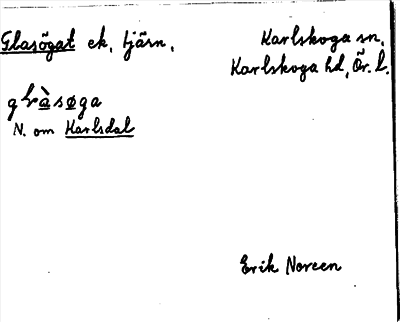 Glasögat ek. tjärn. Karlskoga sn.
Karlskoga hd, Ör. l.
glràsøga
N. om Karlsdal
Erik Noreen